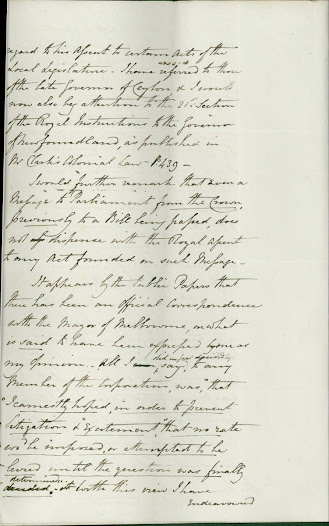 regard to his Assent to certain Acts of the
Local Legislature - I have referred to those
of the late Governor of Ceylon & I would
now also by attention to the 21st Section
of the Royal Instructions to the Governor
of Newfoundland, as published in
Mr Clark's Colonial Law - P 439 -
I would further remark that even a
Message to Parliament from the Crown,
previously to a Bill being passed, does
not dispense with the Royal Assent
to any Act founded on such Message -
It appears by the Public Papers that
there has been an official Correspondence
with the Mayor of Melbourne, on what
is said to have been expressed by me as
my Opinion. - All I did say, to any
Member of the Corporation, was, "that
"I earnestly hoped, in order to prevent
litigation & excitement, "that no rate
wod be imposed, or attempted to be
levied until the question was finally
determined.
decided; - With this view I have
Endeavoured